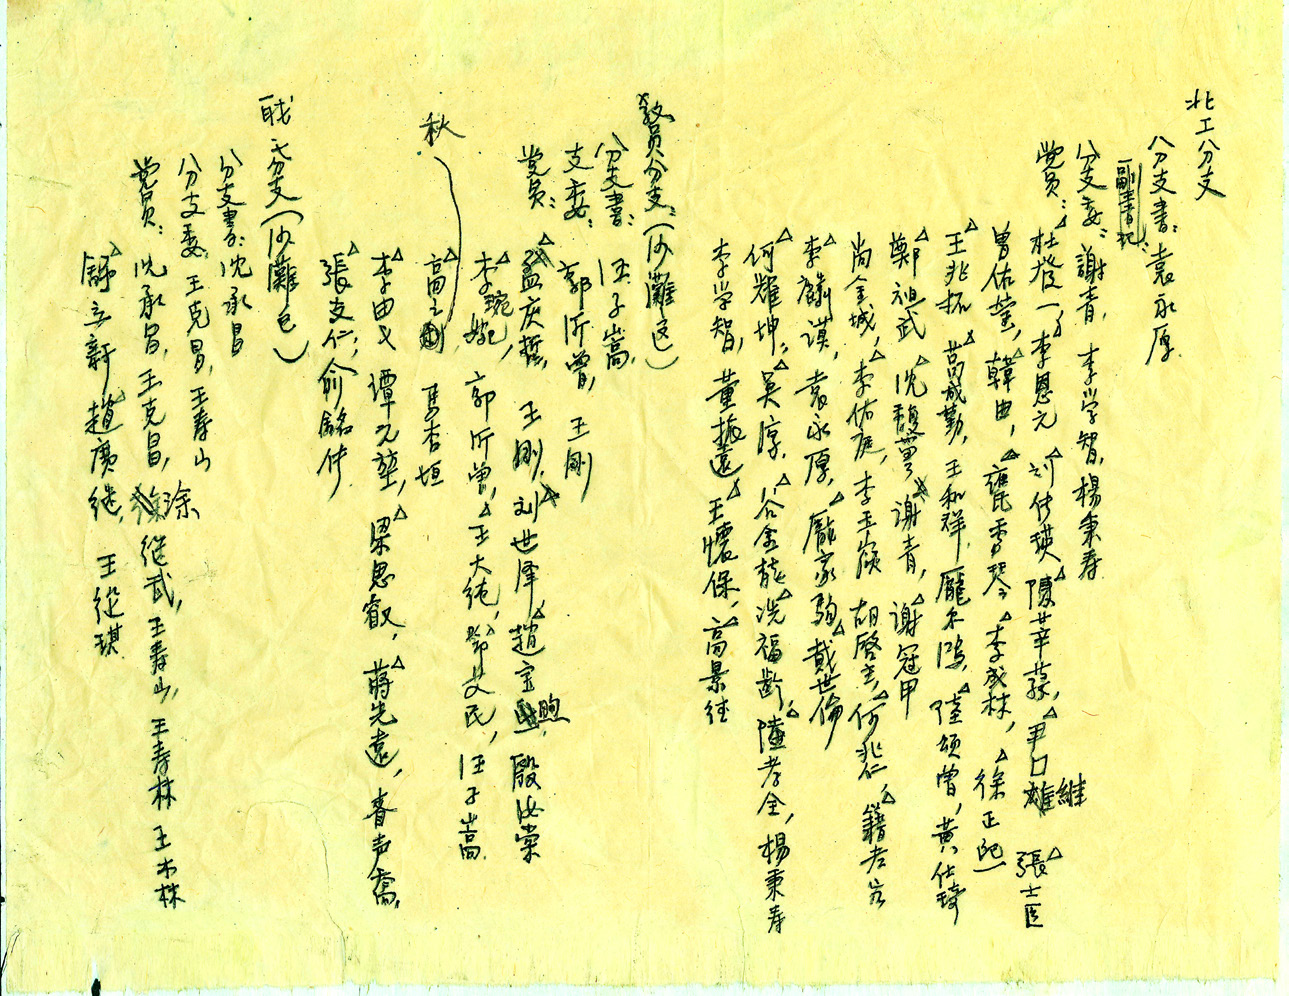 北工分支
分支書：袁永厚
副書記：
分支委：謝青，李学智，楊秉寿
党员：杜發一，李恩元 刘付瑛 陳莘蓀，尹口雄維 張士臣
曾佑瑩，韓由，李成林，徐正熙
王兆振 萬成勤，王和群，龐尔鴻，陸頌曾，黃仕琦
鄭祖武 沈馥萼 謝青，謝冠甲
尚金城，李佑庭，李玉嶺 胡啓立，何兆仁，籍孝宏
李麟谟，袁永厚，龐家駒 戴世倫
何耀坤，吳淳，谷金龍 冼福齡，陸孝全，楊秉寿
李学智，董振遠 王懷保，高景德
教員分支：（沙灘区）
分支書：汪子嵩，
支委：郭沂曾，王剛
党员：孟庆哲，王剛，刘世泽，趙宝煦，殷汝棠
李琬，郭沂曾，王大純，鄧艾民，汪子嵩
秋 高之 馬杏垣
李由义 谭元堃，梁思叡，蔣先遠，春声喬，
張支仁，俞銘传
职工分支（沙灘区）
分支書：沈承昌
分支委：王克昌，王寿山
党员：沈承昌，王克昌，涂继武，王寿山，王寿林 王木林
薛立新 趙廣继，王從琪